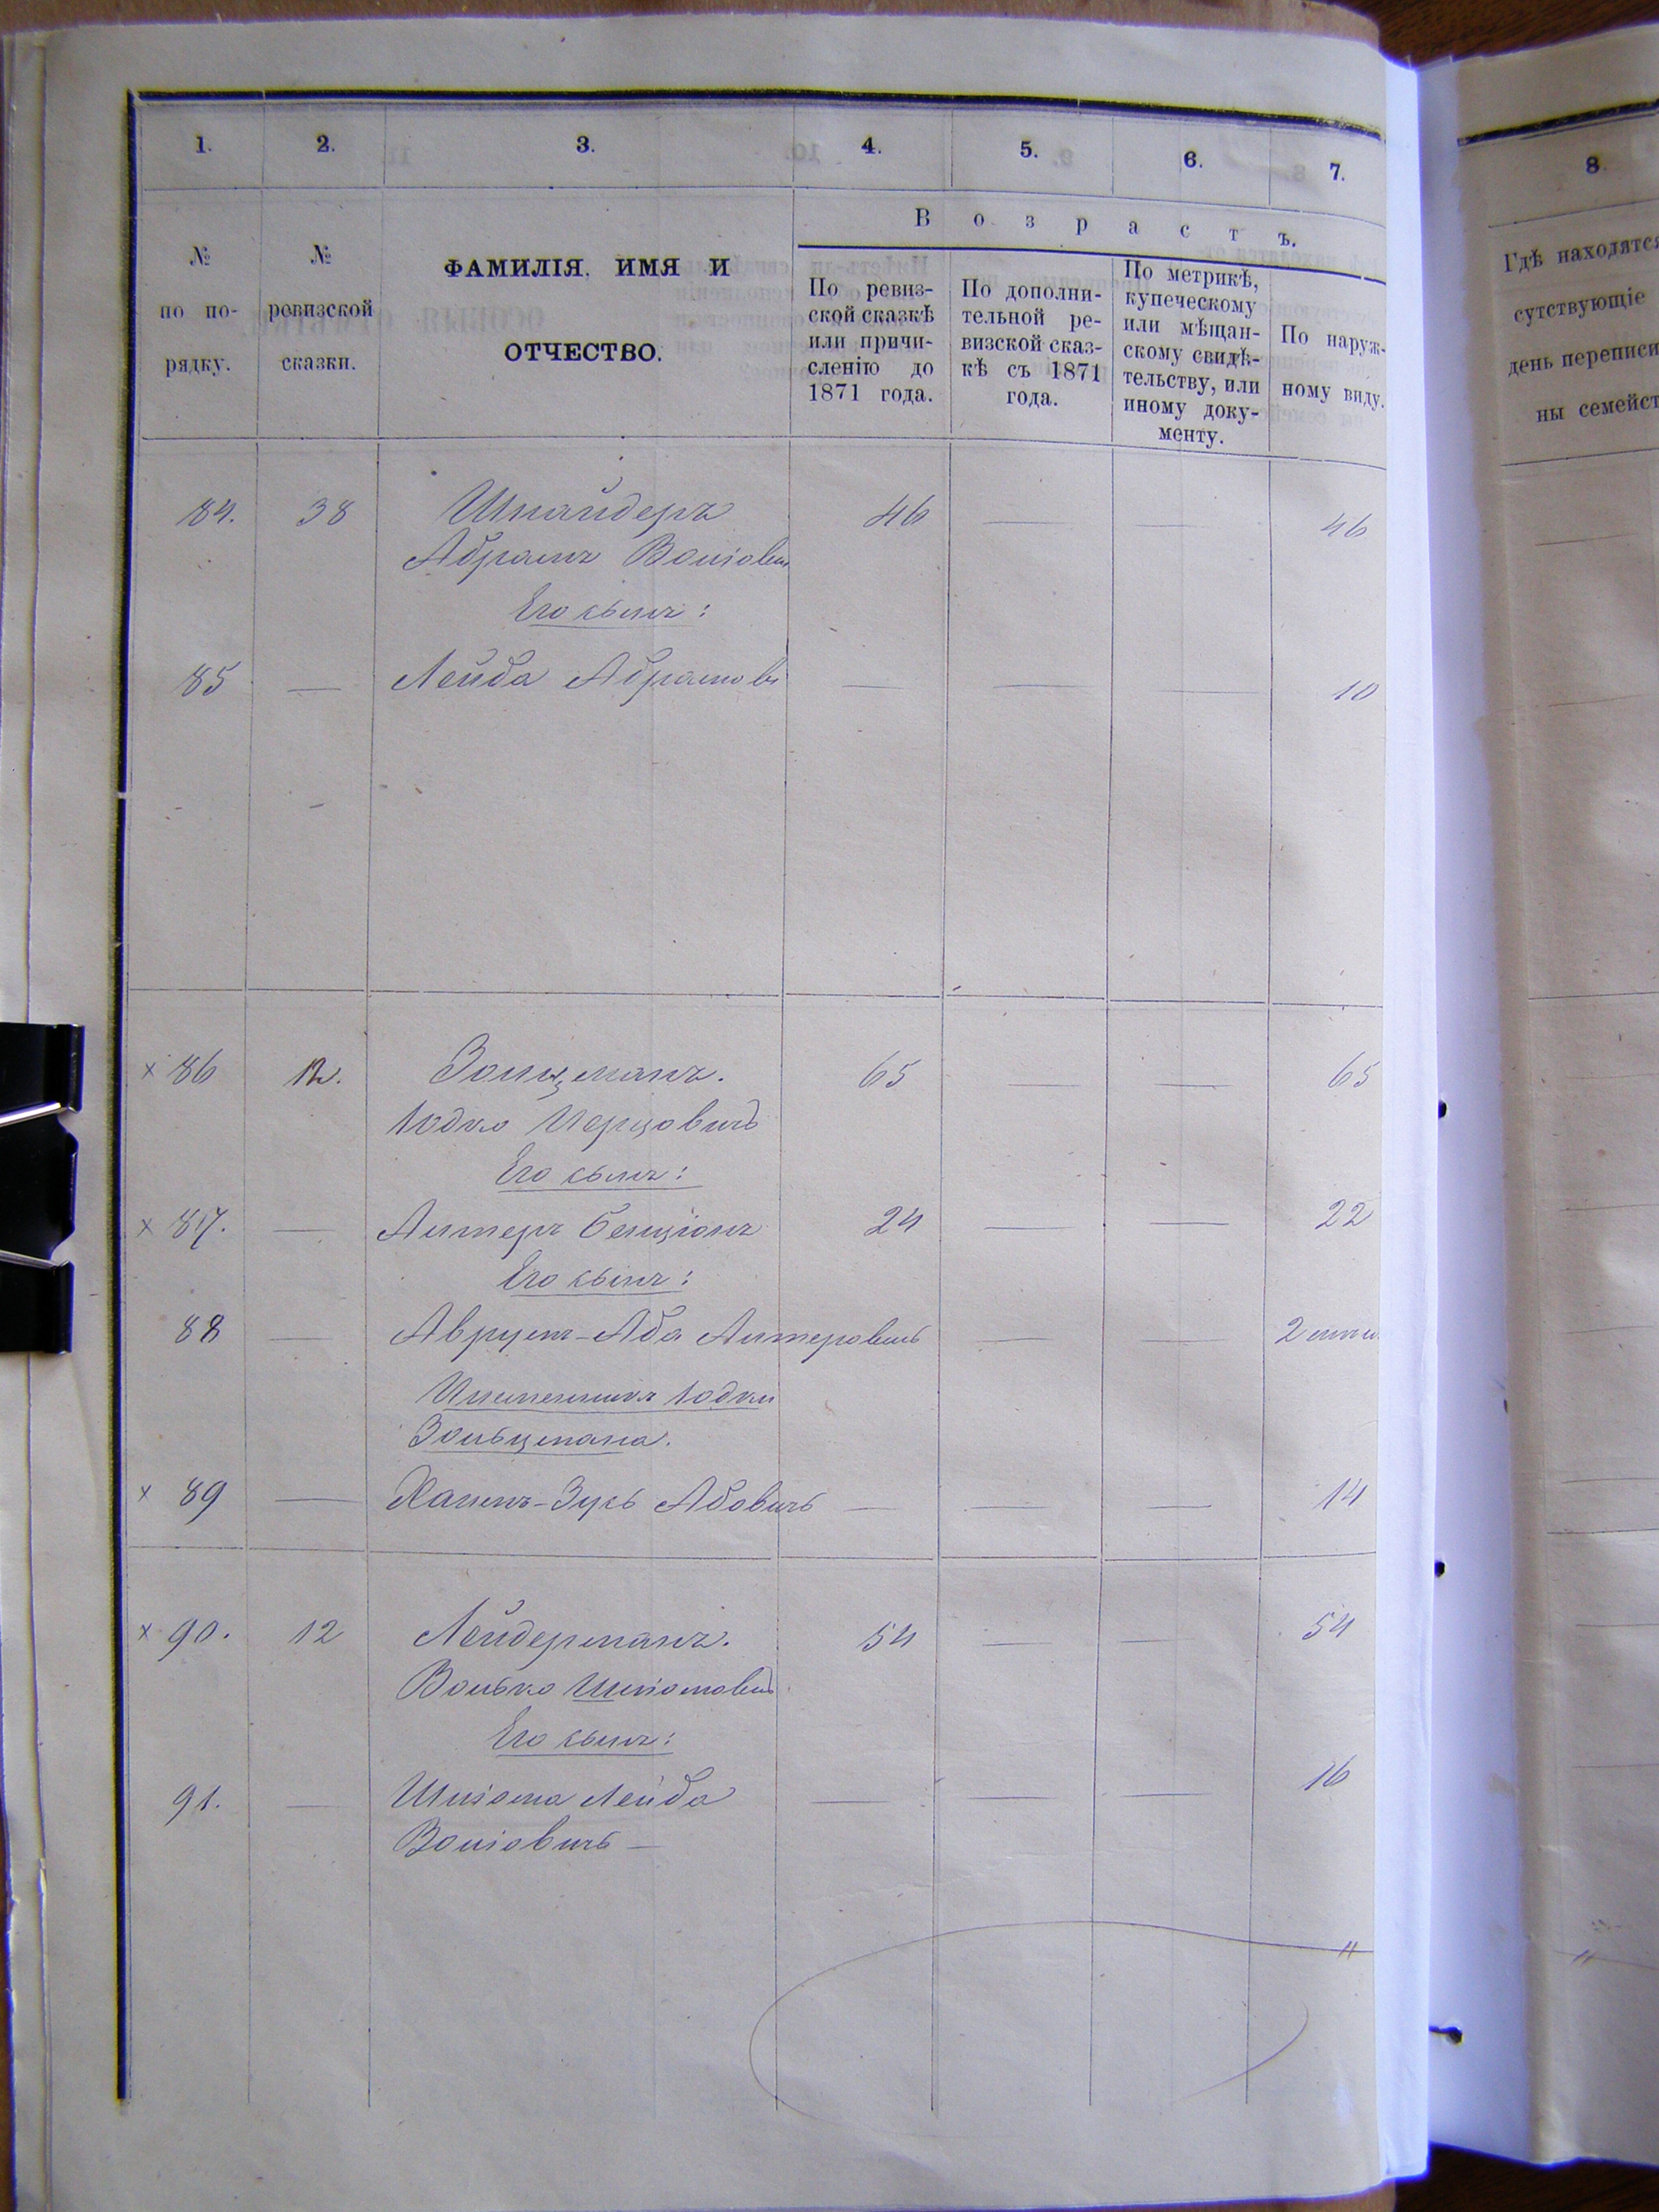 1. 2. 3. 4. 5. 6. 7.
№ по по-рядку.
№ ревизской сказки.
ФАМИЛІЯ, ИМЯ И
ОТЧЕСТВО.
Возрастъ.
По ревиз-
ской сказкѣ
или причи-
сленію до
1871 года.
По дополни-
тельной ре-
визской сказ-
кѣ съ 1871
года.
По метрикѣ,
купеческому
или мѣщан-
скому свидѣ-
тельству, или
иному доку-
менту.
По наруж-
ному виду.
84. 38 Шнайдеръ 46 — — 46
Абрамъ
Его сынъ:
85 — Лейба Абрамов — — — 10
× 86 12. Зольцманъ. 65 — — 65
Іодко Перцовичъ
Его сынъ:
× 87. — Алтеръ Бенціонъ 24 — — 22
Его сынъ:
88 — Аврумъ-Аба Алтеровичъ — — 2
Племянникъ Іодки
Зольцмана.
× 89 — Абовичъ — — — 14
× 90. 12 Лейдерманъ. 54 — — 54
Волько Шліомович
Его сынъ:
91. — Шліома Лейба — — — 16
Воліовичъ —
"
8
Гдѣ находятся
сутствующіе
день переписи
ны семейст